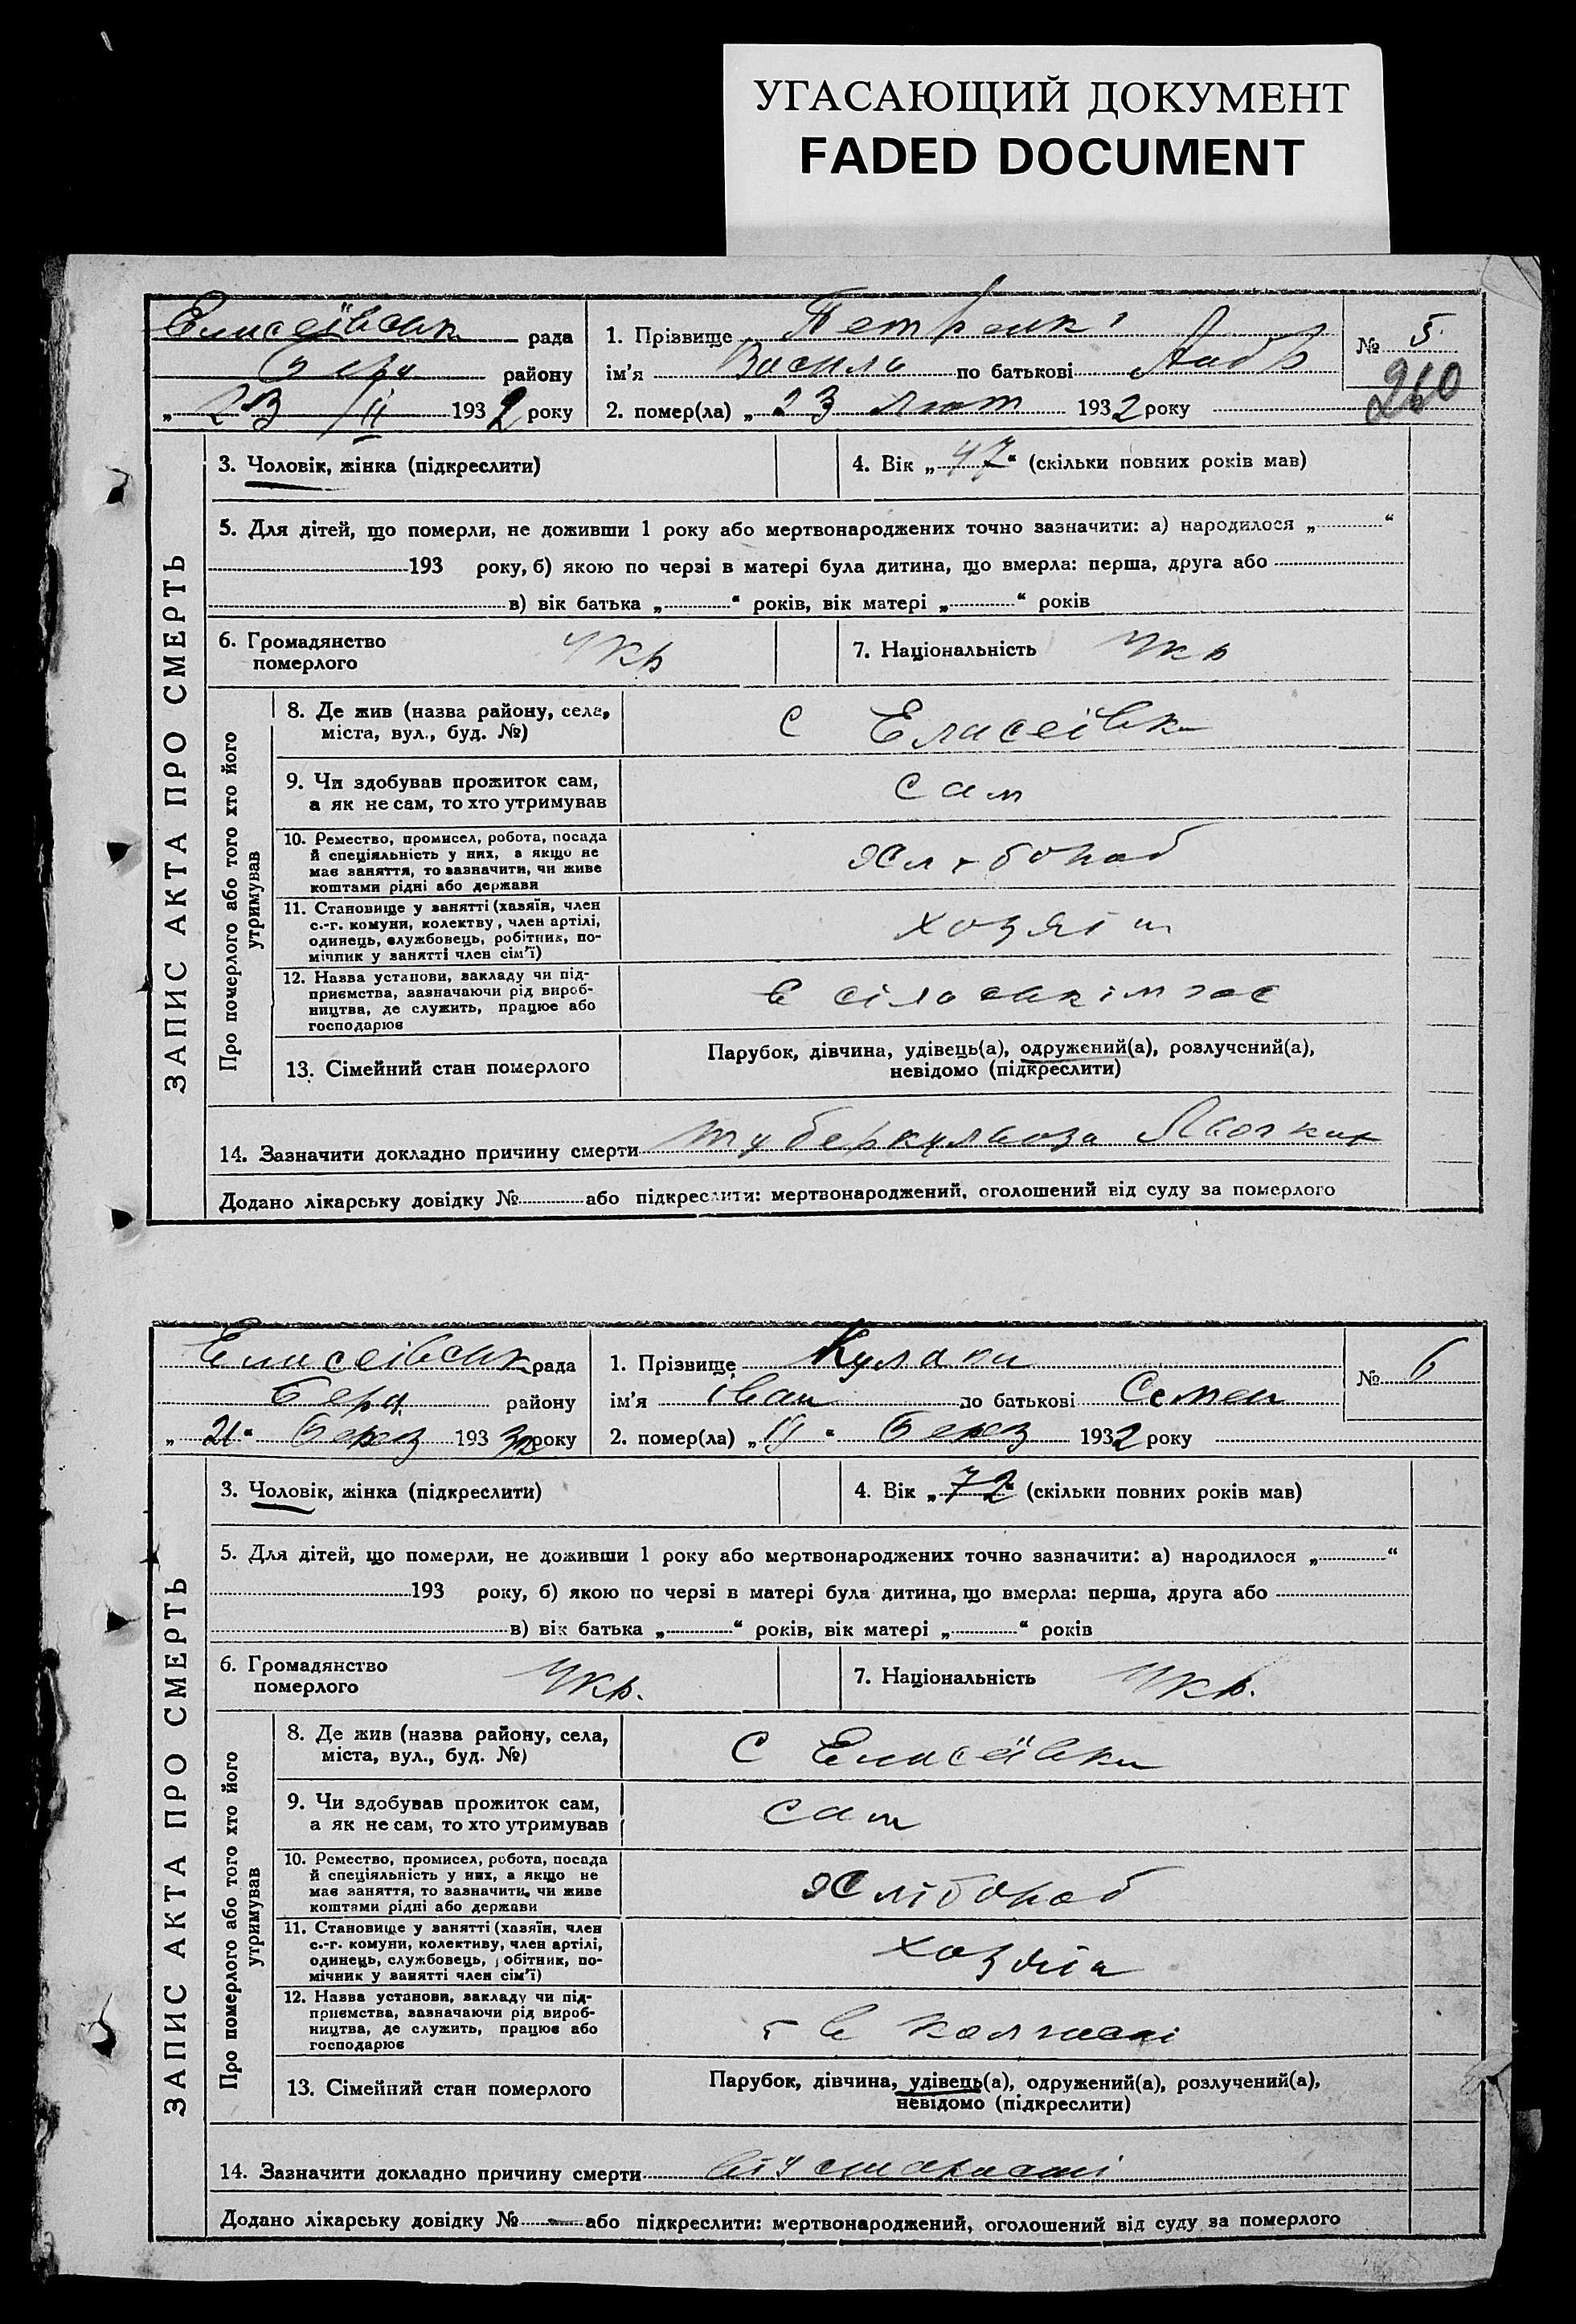 УГАСАЮЩИЙ ДОКУМЕНТ
FADED DOCUMENT
Елисеївськ рада
Берд району
„ 23 /II 1932 року
1. Прізвище
ім’я Василь по батькові
2. помер(ла) „ 23 Лют 1932 року
№ 5
260
ЗАПИС АКТА ПРО СМЕРТЬ
3. Чоловік, жінка (підкреслити)
4. Вік „ 47 “ (скільки повних років мав)
5. Для дітей, що померли, не доживши 1 року або мертвонароджених точно зазначити: а) народилося „ “
193 року, б) якою по черзі в матері була дитина, що вмерла: перша, друга або
в) вік батька „ “ років, вік матері „ “ років
6. Громадянство
померлого
Укр
7. Національність Укр
Про померлого або того хто його
утримував
8. Де жив (назва району, села,
міста, вул., буд. №)
С Елисеївка
9. Чи здобував прожиток сам,
а як не сам, то хто утримував
сам
10. Ремество, промисел, робота, посада
й спеціяльність у них, а якщо не
має заняття, то зазначити, чи живе
коштами рідні або держави
Хлібороб
11. Становище у занятті (хазяїн, член
с.-г. комуни, колектву, член артілі,
одинець, службовець, робітник, по-
мічник у занятті член сім’ї)
хозяїн
12. Назва установи, закладу чи під-
приємства, зазначаючи рід вироб-
ництва, де служить, працює або
господарює
в сільськім гос
13. Сімейний стан померлого
Парубок, дівчина, удівець(а), одружений(а), розлучений(а),
невідомо (підкреслити)
14. Зазначити докладно причину смерти туберкульоза
Додано лікарську довідку № або підкреслити: мертвонароджений, оголошений від суду за померлого
Елисеївськ рада
Берд. району
„ 21 “ Берез 1932 року
1. Прізвище
ім’я Іван по батькові Семен
2. помер(ла) „ 19 “ Берез 1932 року
№ 6
ЗАПИС АКТА ПРО СМЕРТЬ
3. Чоловік, жінка (підкреслити)
4. Вік „ 72 “ (скільки повних років мав)
5. Для дітей, що померли, не доживши 1 року або мертвонароджених точно зазначити: а) народилося „ “
193 року, б) якою по черзі в матері була дитина, що вмерла: перша, друга або
в) вік батька „ “ років, вік матері „ “ років
6. Громадянство
померлого
Укр.
7. Національність Укр.
Про померлого або того хто його
утримував
8. Де жив (назва району, села,
міста, вул., буд. №)
С Елисеївка
9. Чи здобував прожиток сам,
а як не сам, то хто утримував
сам
10. Ремество, промисел, робота, посада
й спеціяльність у них, а якщо не
має заняття, то зазначити, чи живе
коштами рідні або держави
Хлібороб
11. Становище у занятті (хазяїн, член
с.-г. комуни, колективу, член артілі,
одинець, службовець, робітник, по-
мічник у занятті член сім’ї)
хозяїн
12. Назва установи, закладу чи під-
приємства, зазначаючи рід вироб-
ництва, де служить, працює або
господарює
в колгоспі
13. Сімейний стан померлого
Парубок, дівчина, удівець(а), одружений(а), розлучений(а),
невідомо (підкреслити)
14. Зазначити докладно причину смерти від старості
Додано лікарську довідку № або підкреслити: мертвонароджений, оголошений від суду за померлого